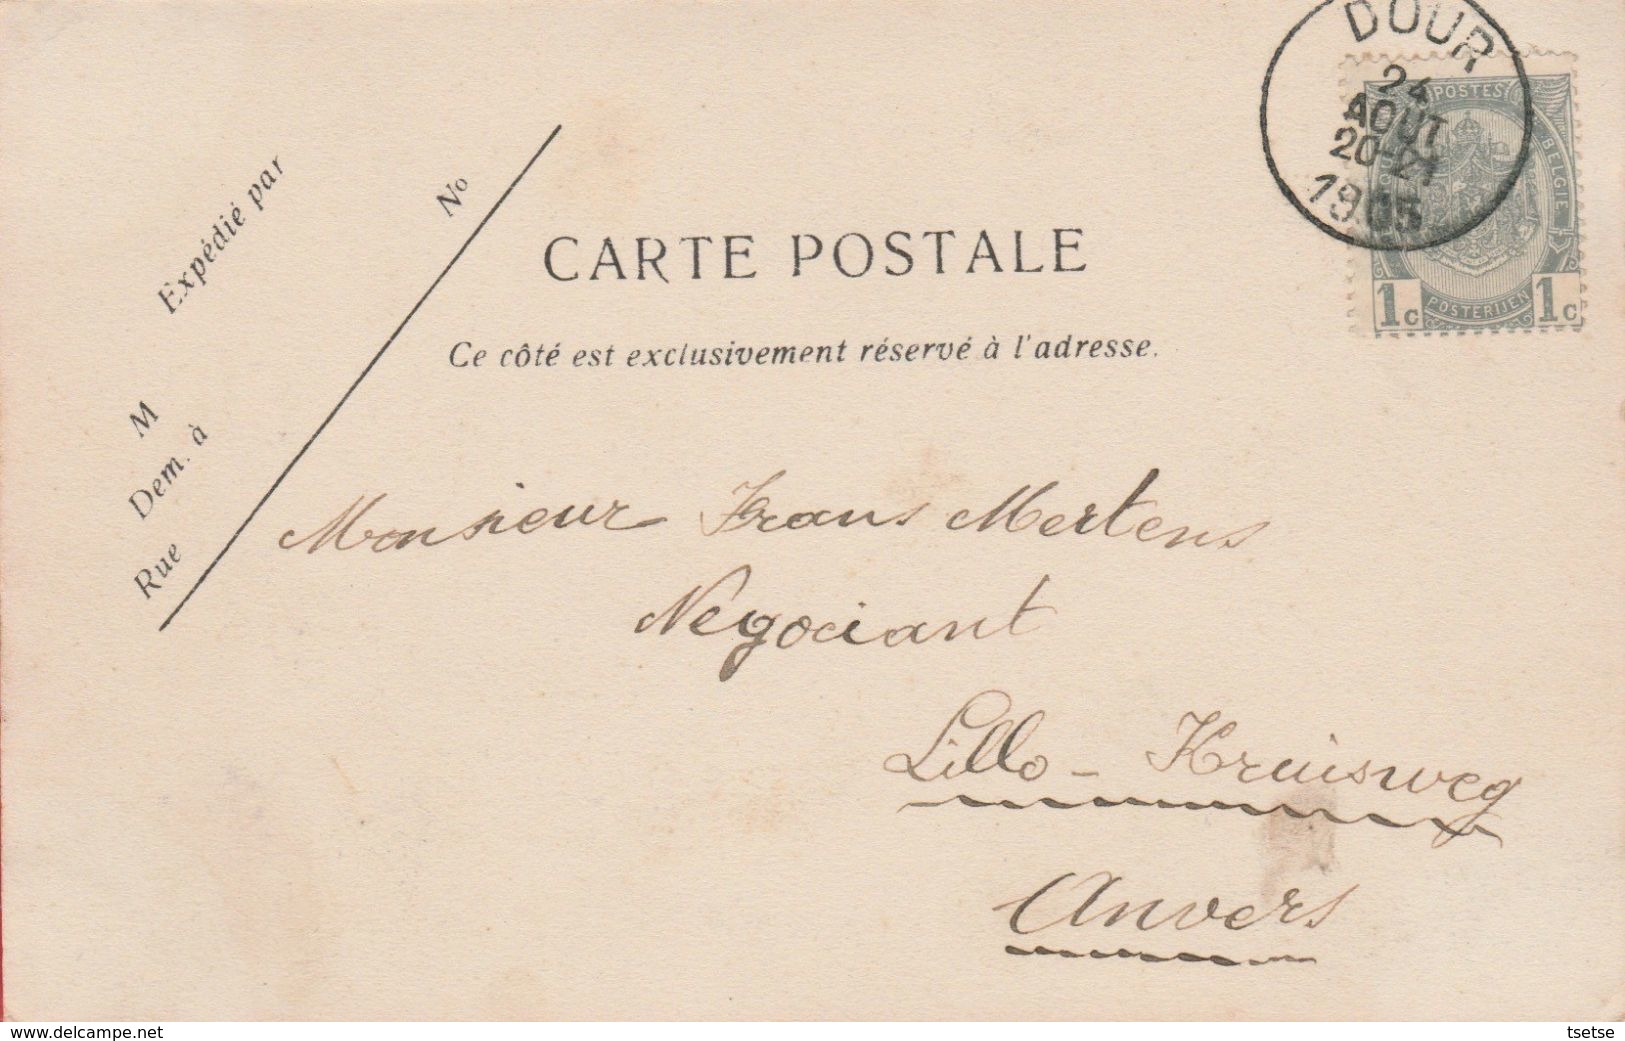 DOUR
24
AOUT
20-21
1905
POSTES
BELGIE
1c
POSTERIJEN
1c
Expédié par
No
M
Dem. à
Rue
CARTE POSTALE
Ce côté est exclusivement réservé à l'adresse.
Monsieur Frans Mertens
Negociant
Lillo - Kruisweg
Anvers
www.delcampe.net
tsetse